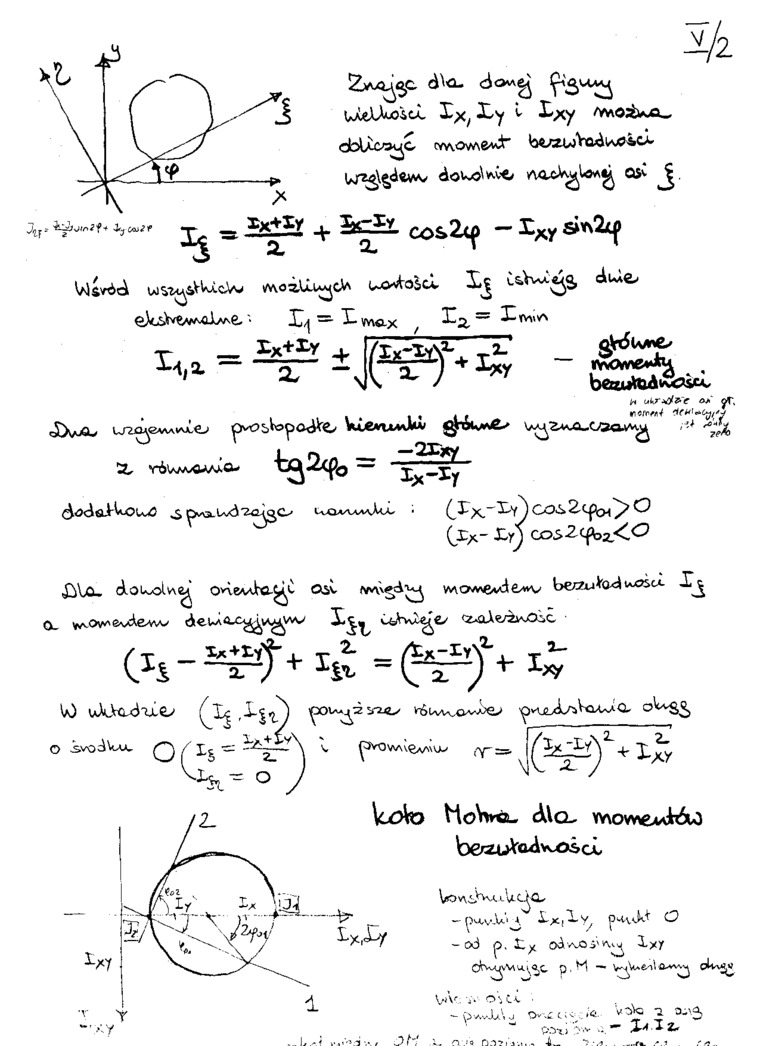 V/2
y
η
ξ
φ
x
Znając dla danej figury
wielkości Ix, Iy i Ixy można
obliczyć moment bezwładności
względem dowolnie nachylonej osi ξ.
Iξ = (Ix+Iy)/2 + (Ix-Iy)/2 cos2φ - Ixy sin2φ
Wśród wszystkich możliwych wartości Iξ istnieją dwie
ekstremalne: I1 = Imax, I2 = Imin
I1,2 = (Ix+Iy)/2 ± √(((Ix-Iy)/2)² + Ixy²) — główne
momenty
bezwładności
w układzie osi gł.
moment dewiacyjny
jest równy
zero
Dwa wzajemnie prostopadłe kierunki główne wyznaczamy
z równania tg2φ0 = -2Ixy/(Ix-Iy)
dodatkowo sprawdzając warunki: (Ix-Iy)cos2φ01>0
(Ix-Iy)cos2φ02<0
Dla dowolnej orientacji osi między momentem bezwładności Iξ
a momentem dewiacyjnym Iξη istnieje zależność.
(Iξ - (Ix+Iy)/2)² + Iξη² = ((Ix-Iy)/2)² + Ixy²
W układzie (Iξ, Iξη) powyższe równanie przedstawia okrąg
o środku O(Iξ = (Ix+Iy)/2, Iξη = 0) i promieniu r = √(((Ix-Iy)/2)² + Ixy²)
koło Mohra dla momentów
bezwładności
2
φ02
Iy
Ix
I1
I2
2φ01
φ01
Ix, Iy
Ixy
Ixy
1
konstrukcja
- punkty Ix, Iy, punkt O
- od p. Ix odnosimy Ixy
otrzymując p. M - wykreślamy okrąg
własności:
- punkty przecięcia koła z osią
poziomą - I1, I2